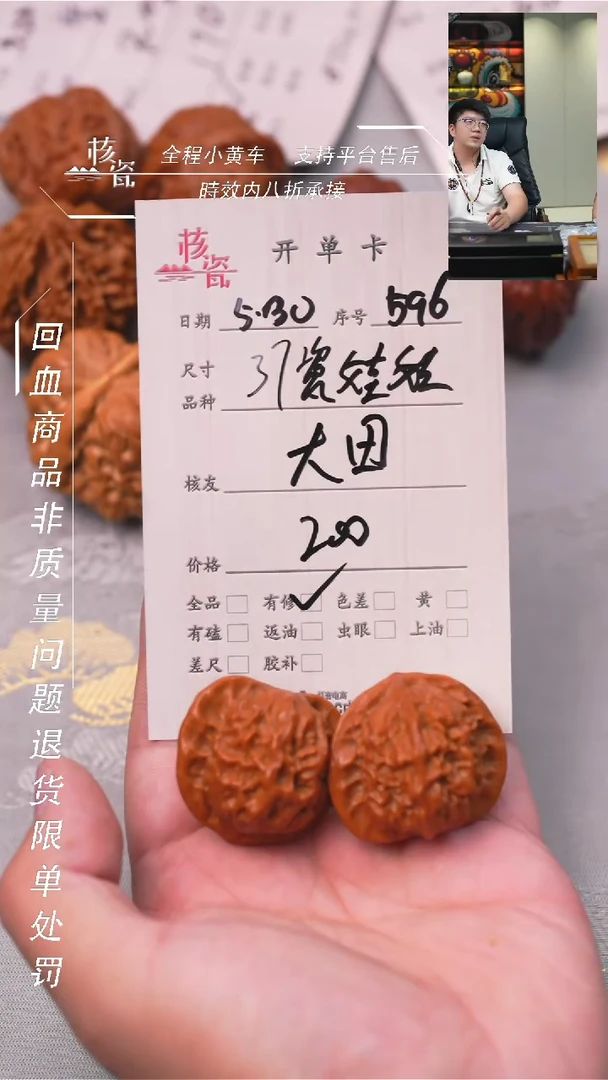 核瓷
全程小黄车 支持平台售后
時效内八折承接
回血商品非质量问题退货限单处罚
核瓷 开单卡
日期 5.30 序号 596
尺寸
品种
核友 大因
价格 200
全品 有修 ✓ 色差 黄
有磕 返油 虫眼 上油
差尺 胶补